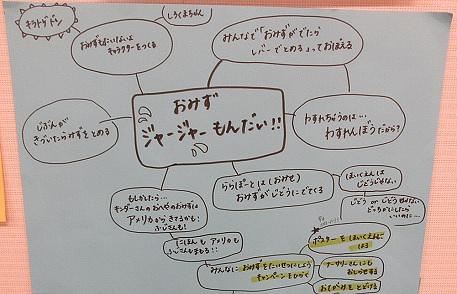 しろくまちゃん
キラトゲドン
おみずもたいないよ
キャラクターをつくる
みんなで「おみずがでたら
レバーでとめる」っておぼえる
おみず
ジャージャー もんだい!!
じぶんが
きづいたらみずをとめる
わすれちゃうのは…
わすれんぼうだから?
もしかしたら…
キンダーさんのおへやのおみずは
アメリカからきてるかも!
ふじさんも!
にほんも アメリカも
ふじさんもまもろう!!
ららぽーとは(おみせ)
おみずがじどうにでてくる
ほいくえんは
じどうじゃない
じどう or じどうじゃない
どっちがいいしたら
いいのに…
みんなに おみずをたいせつにしよう
キャンペーンをひらく
ポスターをほいくえんに
はる
アーサリーさんにも
おしらせする
おてがみをとどける